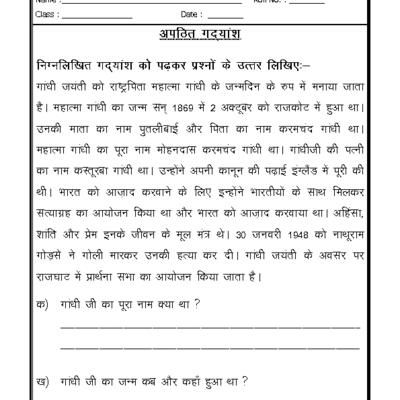 Name : ____________________ Roll No. : ________
Class : ______________ Date : _______
अपठित गद्यांश
निम्नलिखित गद्यांश को पढ़कर प्रश्नों के उत्तर लिखिए:–
गांधी जयती को राष्ट्रपिता महात्मा गांधी के जन्मदिन के रुप में मनाया जाता
है। महात्मा गांधी का जन्म सन् 1869 में 2 अक्टूबर को राजकोट में हुआ था।
उनकी माता का नाम पुतलीबाई और पिता का नाम करमचद गांधी था।
महात्मा गांधी का पूरा नाम मोहनदास करमचंद गांधी था। गांधीजी की पत्नी
का नाम कस्तूरबा गांधी था। उन्होंने अपनी कानून की पढ़ाई इंग्लैंड में पूरी की
थी। भारत को आज़ाद करवाने के लिए इन्होंने भारतीयों के साथ मिलकर
सत्याग्रह का आयोजन किया था और भारत को आजाद करवाया था। अहिंसा,
शांति और प्रेम इनके जीवन के मूल मंत्र थे। 30 जनवरी 1948 को नाथूराम
गोड़से ने गोली मारकर उनकी हत्या कर दी। गांधी जयती के अवसर पर
राजघाट में प्रार्थना सभा का आयोजन किया जाता है।
क) गांधी जी का पूरा नाम क्या था ?
ख) गांधी जी का जन्म कब और कहाँ हुआ था ?